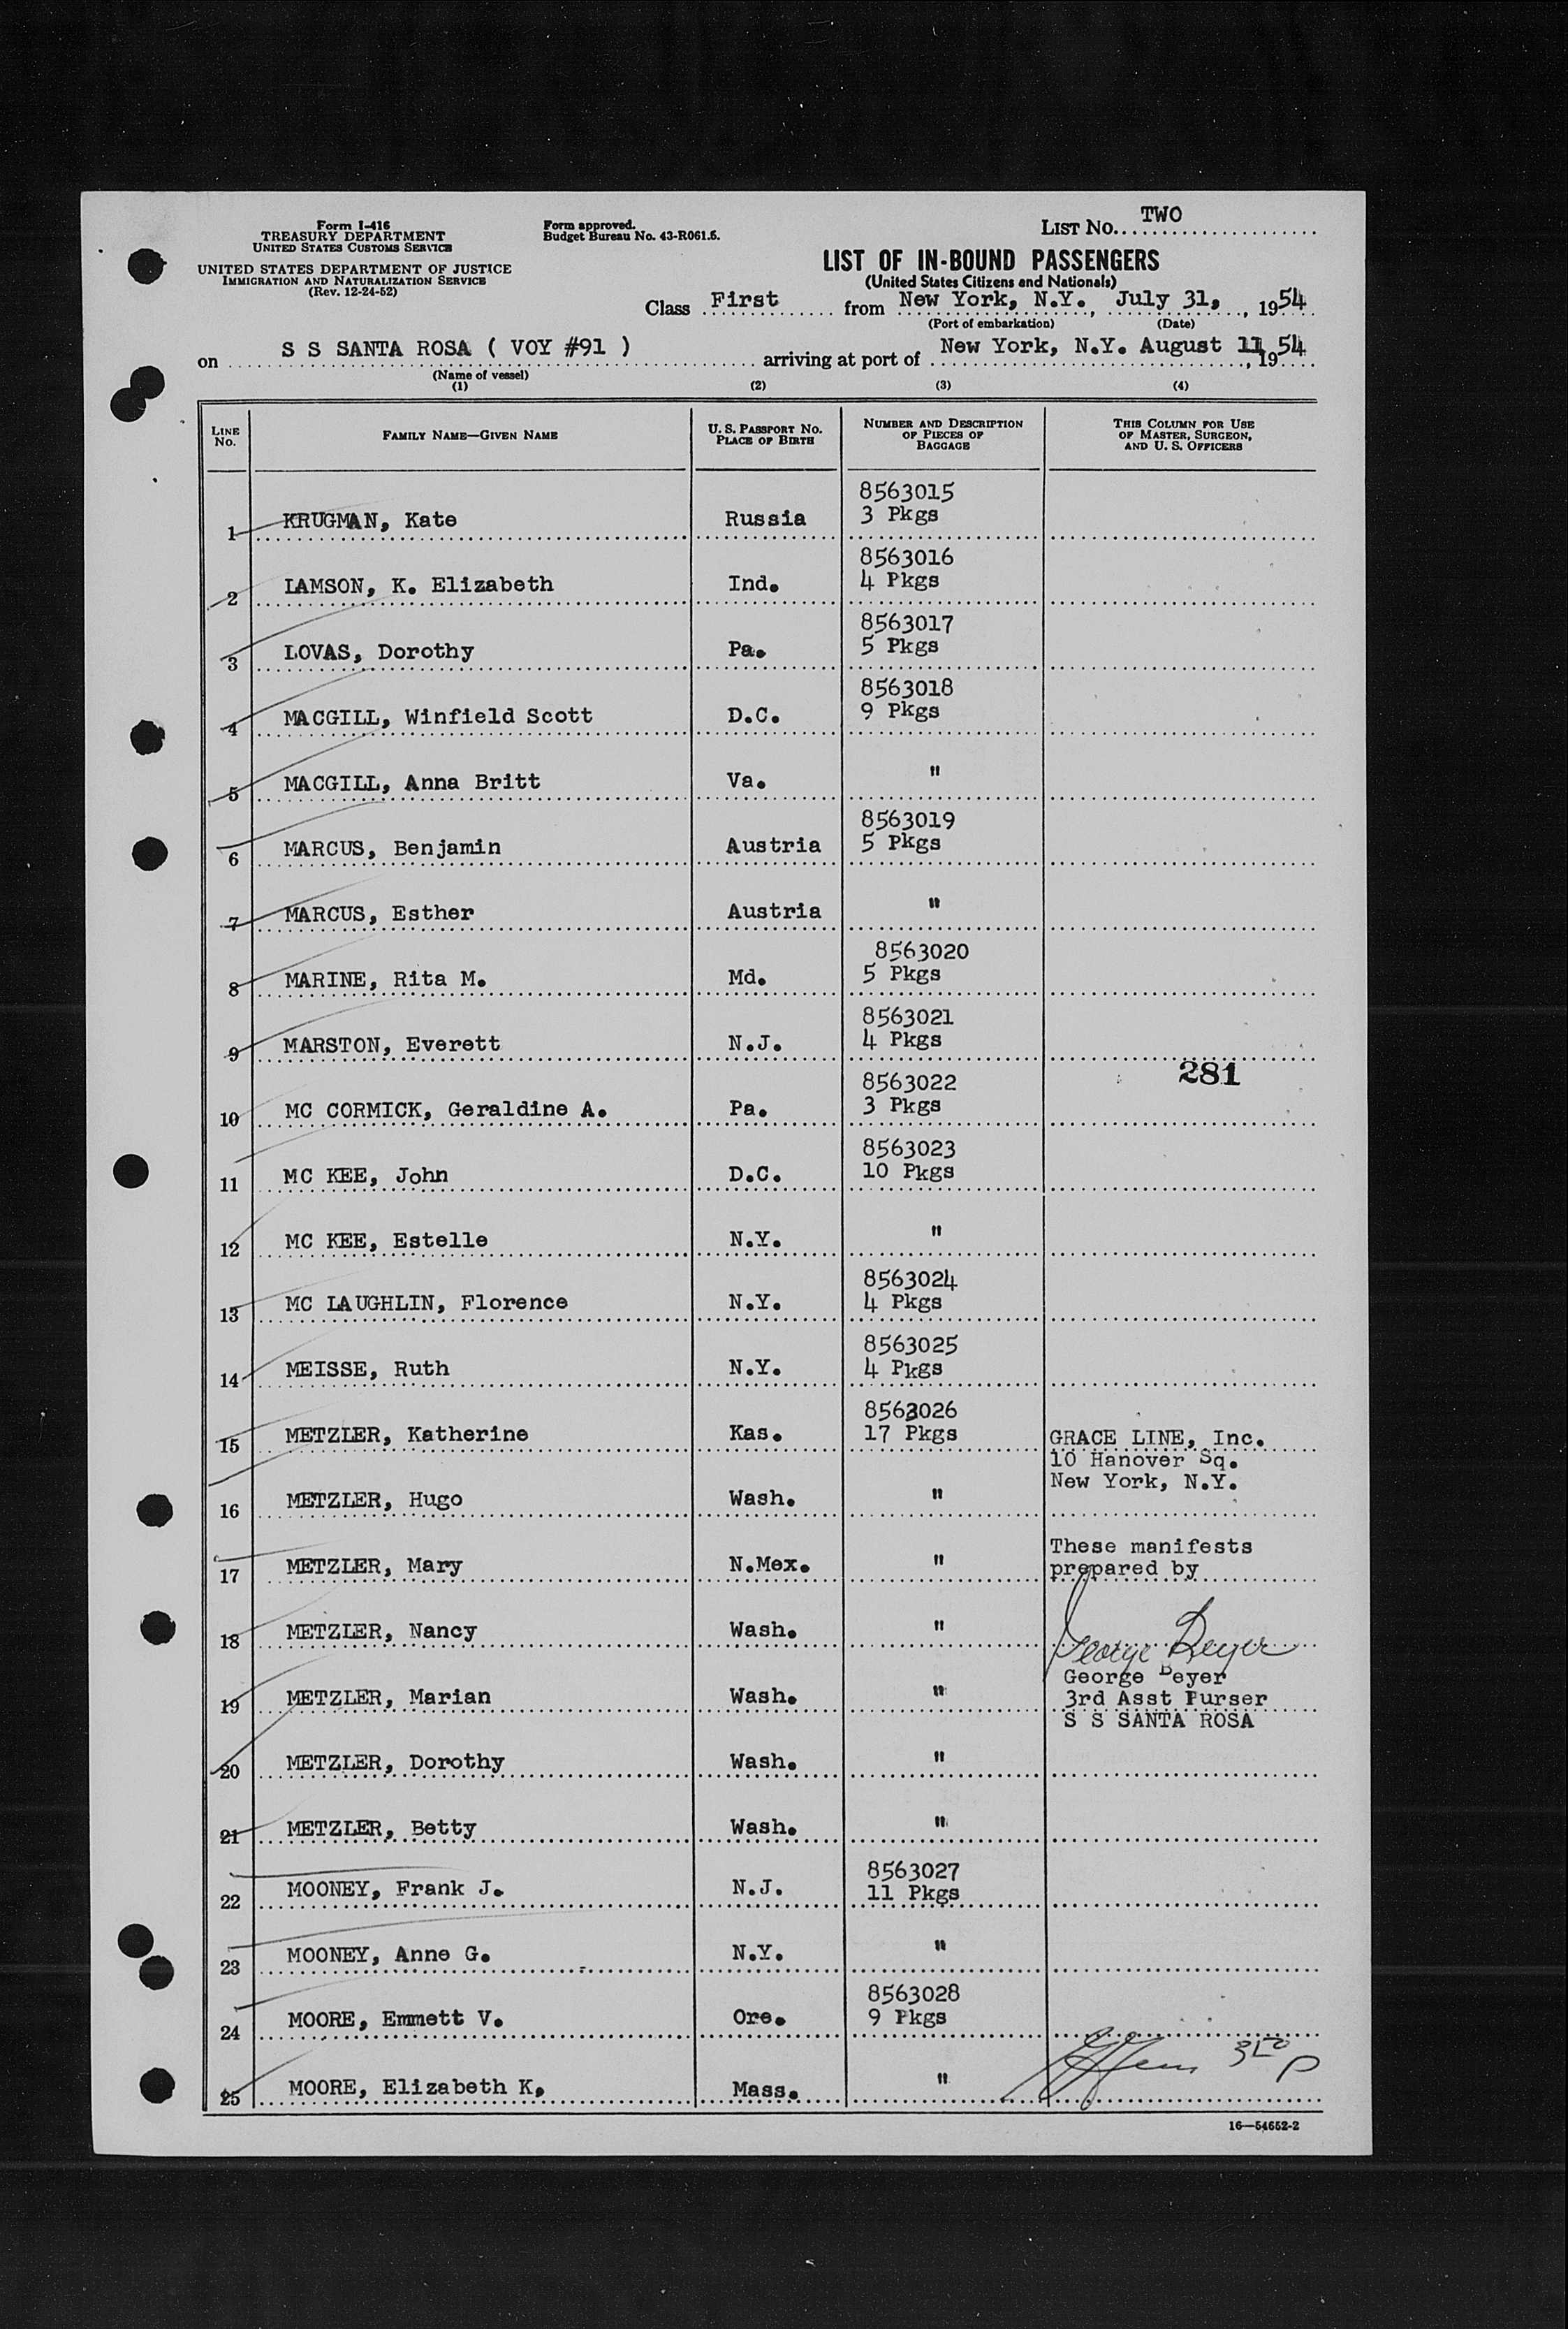 Form I-416
TREASURY DEPARTMENT
UNITED STATES CUSTOMS SERVICE
UNITED STATES DEPARTMENT OF JUSTICE
IMMIGRATION AND NATURALIZATION SERVICE
(Rev. 12-24-52)
Form approved.
Budget Bureau No. 43-R061.5.
LIST No. TWO
LIST OF IN-BOUND PASSENGERS
(United States Citizens and Nationals)
Class First from New York, N.Y., July 31, 1954
(Port of embarkation) (Date)
on S S SANTA ROSA ( VOY #91 ) arriving at port of New York, N.Y. August 11, 1954
(Name of vessel)
(1) (2) (3) (4)
LINE No. FAMILY NAME—GIVEN NAME U. S. PASSPORT No. PLACE OF BIRTH NUMBER AND DESCRIPTION OF PIECES OF BAGGAGE THIS COLUMN FOR USE OF MASTER, SURGEON, AND U. S. OFFICERS
8563015
1 KRUGMAN, Kate Russia 3 Pkgs
8563016
2 LAMSON, K. Elizabeth Ind. 4 Pkgs
8563017
3 LOVAS, Dorothy Pa. 5 Pkgs
8563018
4 MACGILL, Winfield Scott D.C. 9 Pkgs
5 MACGILL, Anna Britt Va. "
8563019
6 MARCUS, Benjamin Austria 5 Pkgs
7 MARCUS, Esther Austria "
8563020
8 MARINE, Rita M. Md. 5 Pkgs
8563021
9 MARSTON, Everett N.J. 4 Pkgs
281
8563022
10 MC CORMICK, Geraldine A. Pa. 3 Pkgs
8563023
11 MC KEE, John D.C. 10 Pkgs
12 MC KEE, Estelle N.Y. "
8563024
13 MC LAUGHLIN, Florence N.Y. 4 Pkgs
8563025
14 MEISSE, Ruth N.Y. 4 Pkgs
8563026
15 METZLER, Katherine Kas. 17 Pkgs GRACE LINE, Inc.
10 Hanover Sq.
New York, N.Y.
16 METZLER, Hugo Wash. "
These manifests
17 METZLER, Mary N.Mex. " prepared by
18 METZLER, Nancy Wash. " George Beyer
George Beyer
19 METZLER, Marian Wash. " 3rd Asst Purser
S S SANTA ROSA
20 METZLER, Dorothy Wash. "
21 METZLER, Betty Wash. "
8563027
22 MOONEY, Frank J. N.J. 11 Pkgs
23 MOONEY, Anne G. N.Y. "
8563028
24 MOORE, Emmett V. Ore. 9 Pkgs
25 MOORE, Elizabeth K. Mass. "
16—54652-2